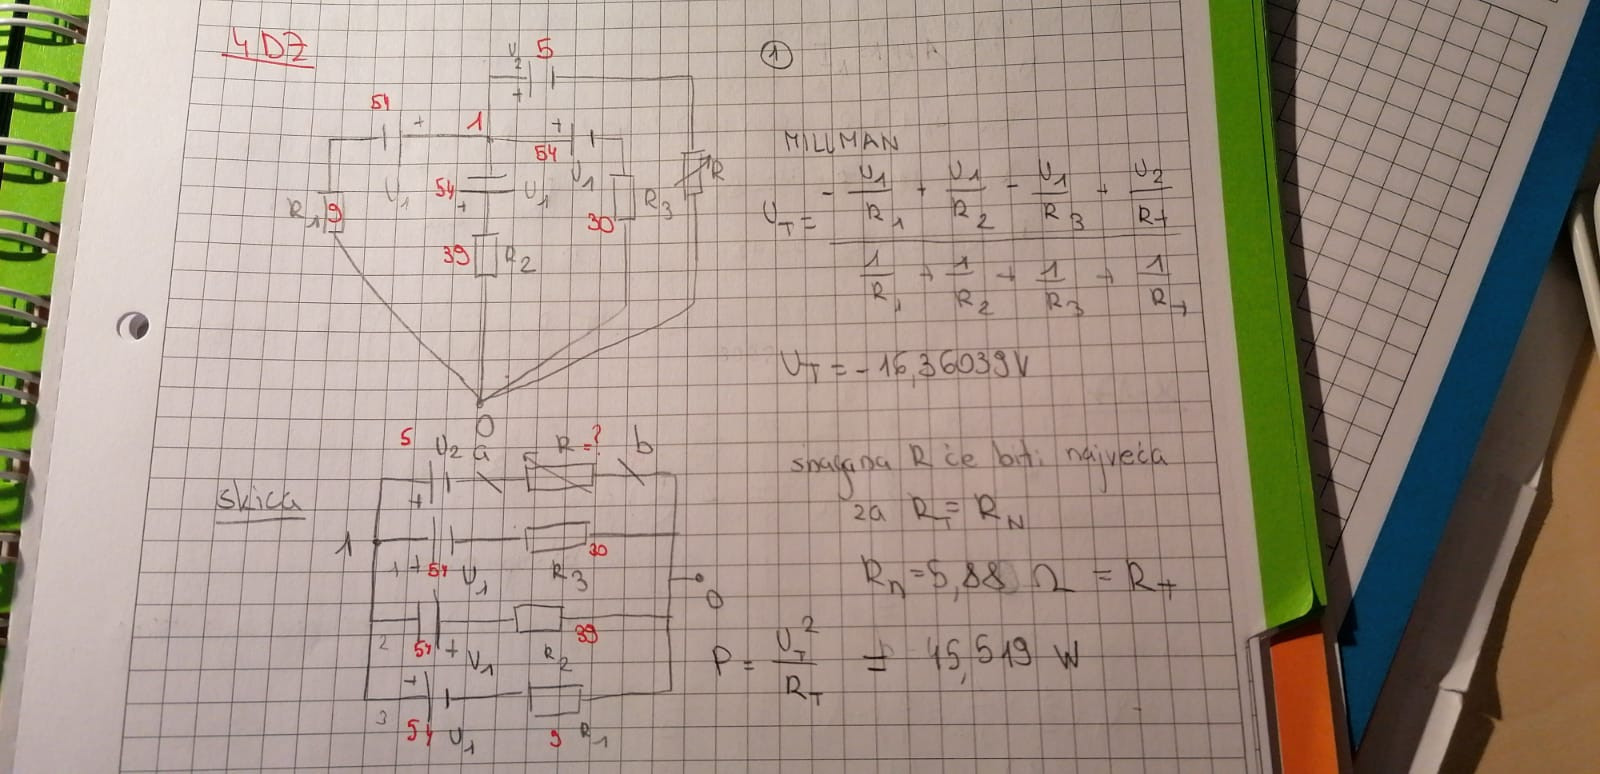 4 DZ
U2 5
+
54 + 1 +
54
R1 9 U1 54 U1 U1 R3 R
+ 30
39 R2
0
skica
5 U2 a R=? b
+
1
1 + 54 U1 R3 30
0
2 54 + U1 R2 39
+
3 54 U1 9 R1
1
MILLMAN
UT = - U1/R1 + U1/R2 - U1/R3 + U2/RT
1/R1 + 1/R2 + 1/R3 + 1/RT
UT = - 16,36039V
snaga na R će biti najveća
za RT = RN
Rn = 5,88 Ω = RT
P = UT²/RT = 45,519 W